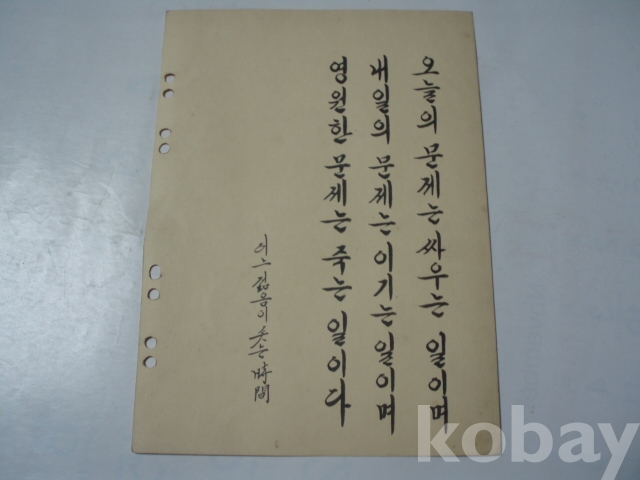 오늘의 문제는 싸우는 일이며
내일의 문제는 이기는 일이며
영원한 문제는 죽는 일이다
어느 젊음이 웃는 時間
kobay